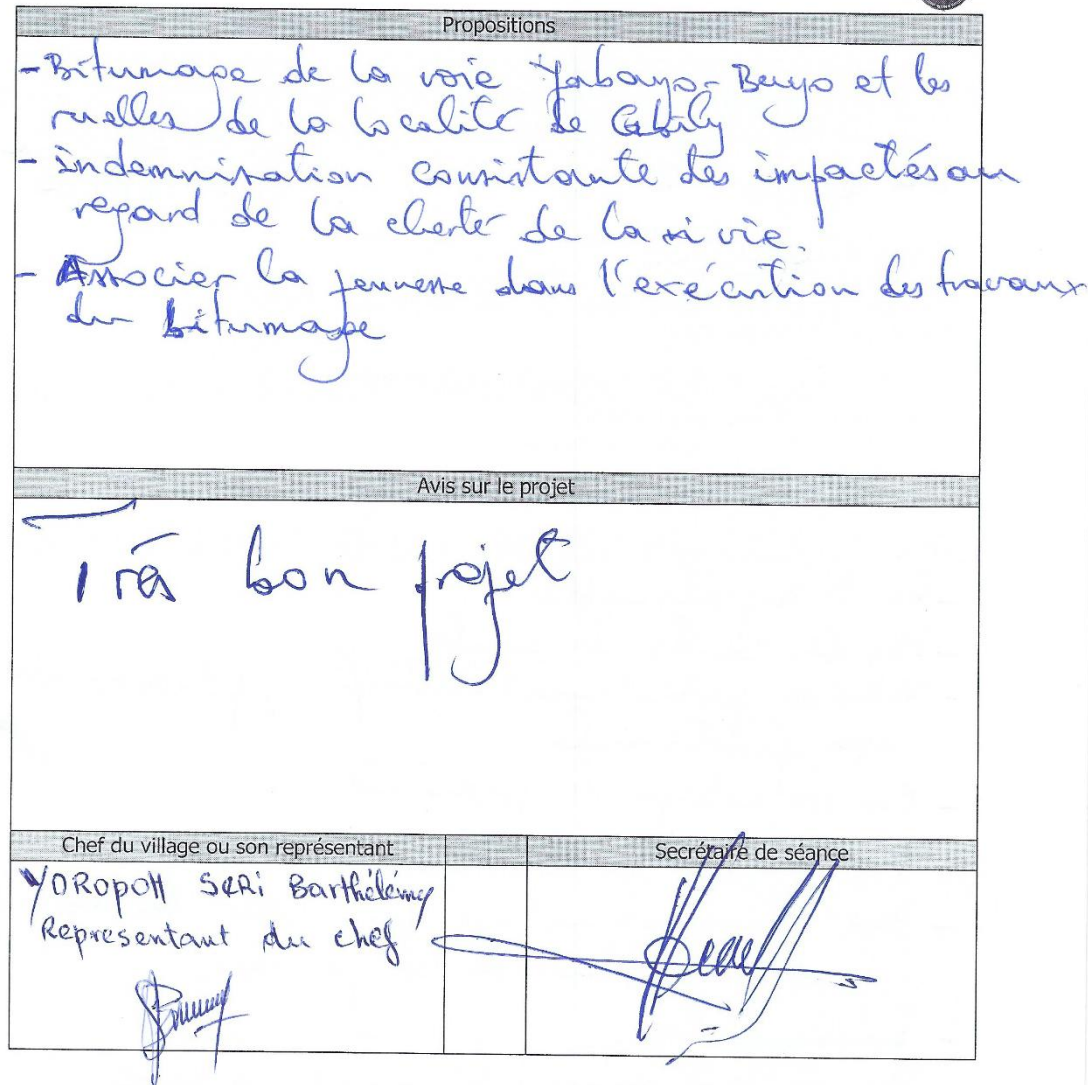 Propositions
- Bitumage de la voie Yabayo-Buyo et les
ruelles de la localité de Gbily
- indemnisation consistante des impactés au
regard de la cherté de la vie.
- Associer la jeunesse dans l'exécution des travaux
du bitumage
Avis sur le projet
Très bon projet
Chef du village ou son représentant
Secrétaire de séance
YOROPOH SERI Barthélémy
Représentant du chef